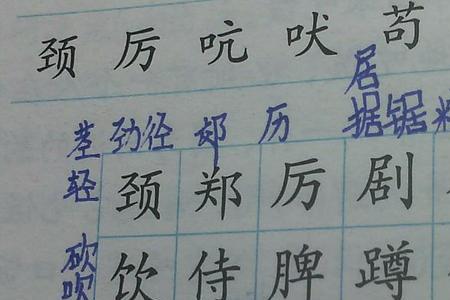 颈 厉 吭 吠 苟
居
茎 劲 径 郑 历 据 锯
轻 颈 郑 厉 剧
砍 饮 侍 脾 蹲
吹